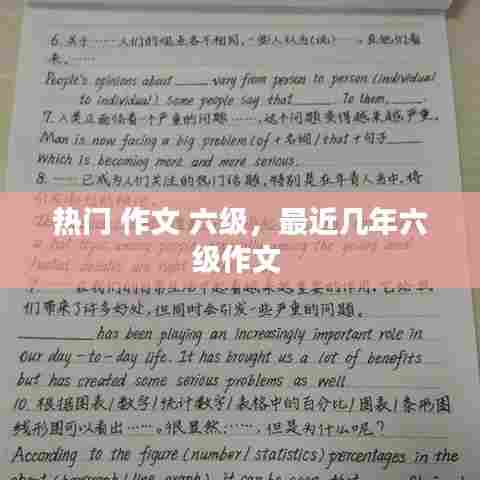 6. 关于……人们的观点各不相同,一些人认为(说)……,在他们看
来,……
People's opinions about ____ vary from person to person (individual
to individual) some people say that ____. To them, ____.
7. 人类正面临着一个严重的问题……,这个问题变得越来越严重。
Man is now facing a big problem (of + 名词 / that + 句子____
which is becoming more and more serious.
8. ……已成为人们关注的热门话题,特别是在年青人当中,将
热门 作文 六级,最近几年六
级作文
们带来了许多好处,但同时也引发一些严重的问题。
____ has been playing an increasingly important role in
our day-to-day life. It has brought us a lot of benefits
but has created some serious problems as well
10. 根据图表/数字/统计数字/表格中的百分比/图表/条形图
线形图可以看出……。很显然……,但是为什么呢?
According to the figure (number / statistics) percentages in the